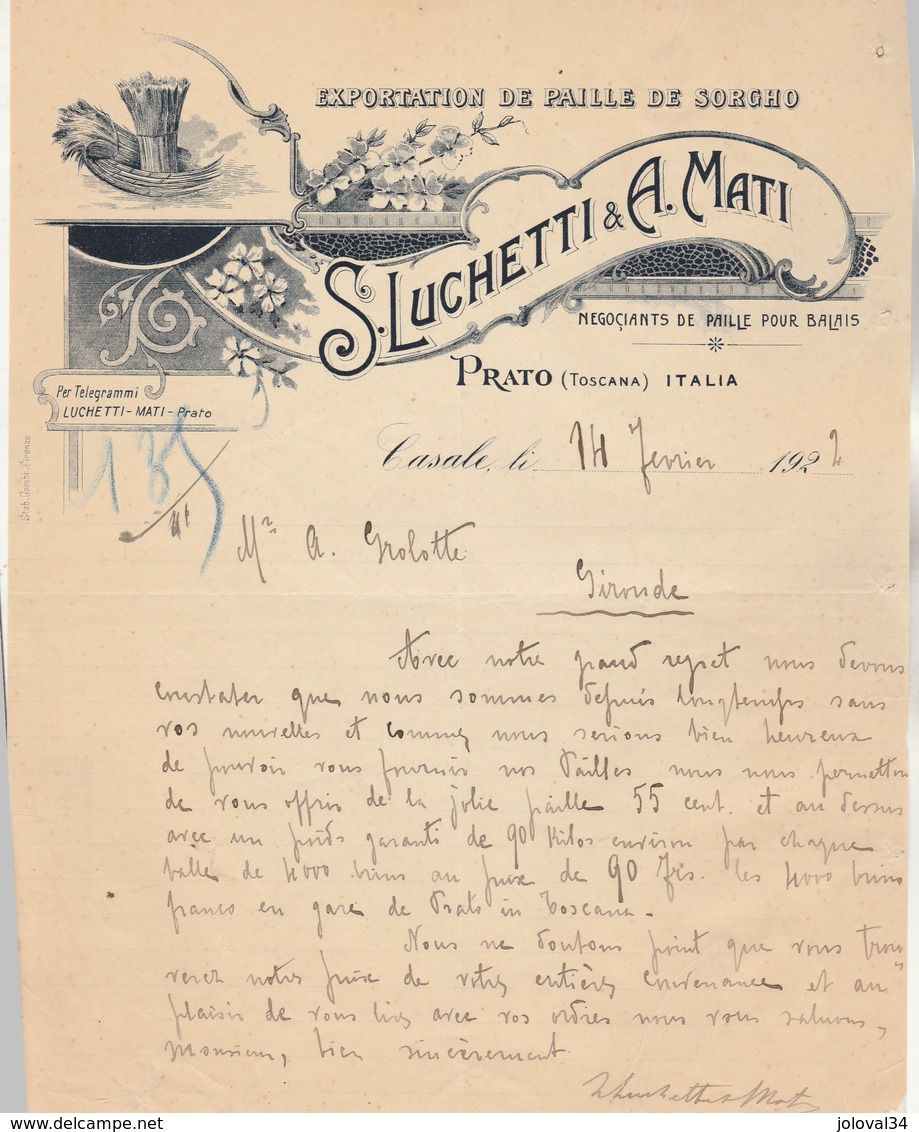 EXPORTATION DE PAILLE DE SORGHO
S. LUCHETTI & A. MATI
NEGOÇIANTS DE PAILLE POUR BALAIS
PRATO (TOSCANA) ITALIA
Per Telegrammi
LUCHETTI-MATI-Prato
Stab. Gambi. Firenze
Casale, li 14 fevrier 1922
135
Mr A. Grolotte
Gironde
Avec notre grand regret nous devons
constater que nous sommes depuis longtemps sans
vos nouvelles et comme nous serions bien heureux
de pouvoir vous fournir nos Pailles nous nous permetton
de vous offrir de la jolie paille 55 cent. et au dessus
avec un poids garanti de 90 Kilos environ par chaque
balle de 4000 brins au prix de 90 Frs. les 4000 brins
franco en gare de Prato in Toscana.
Nous ne doutons point que vous trou
verez notre prix de votre entière convenance et au
plaisir de vous lire avec vos ordres nous vous saluons,
Monsieur, bien sincèrement.
Luchetti & Mati
joloval34